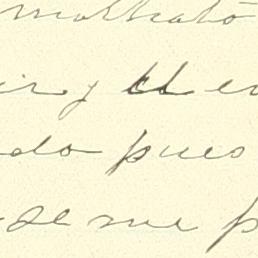 maltrató
ir y el en
do pues
se me p